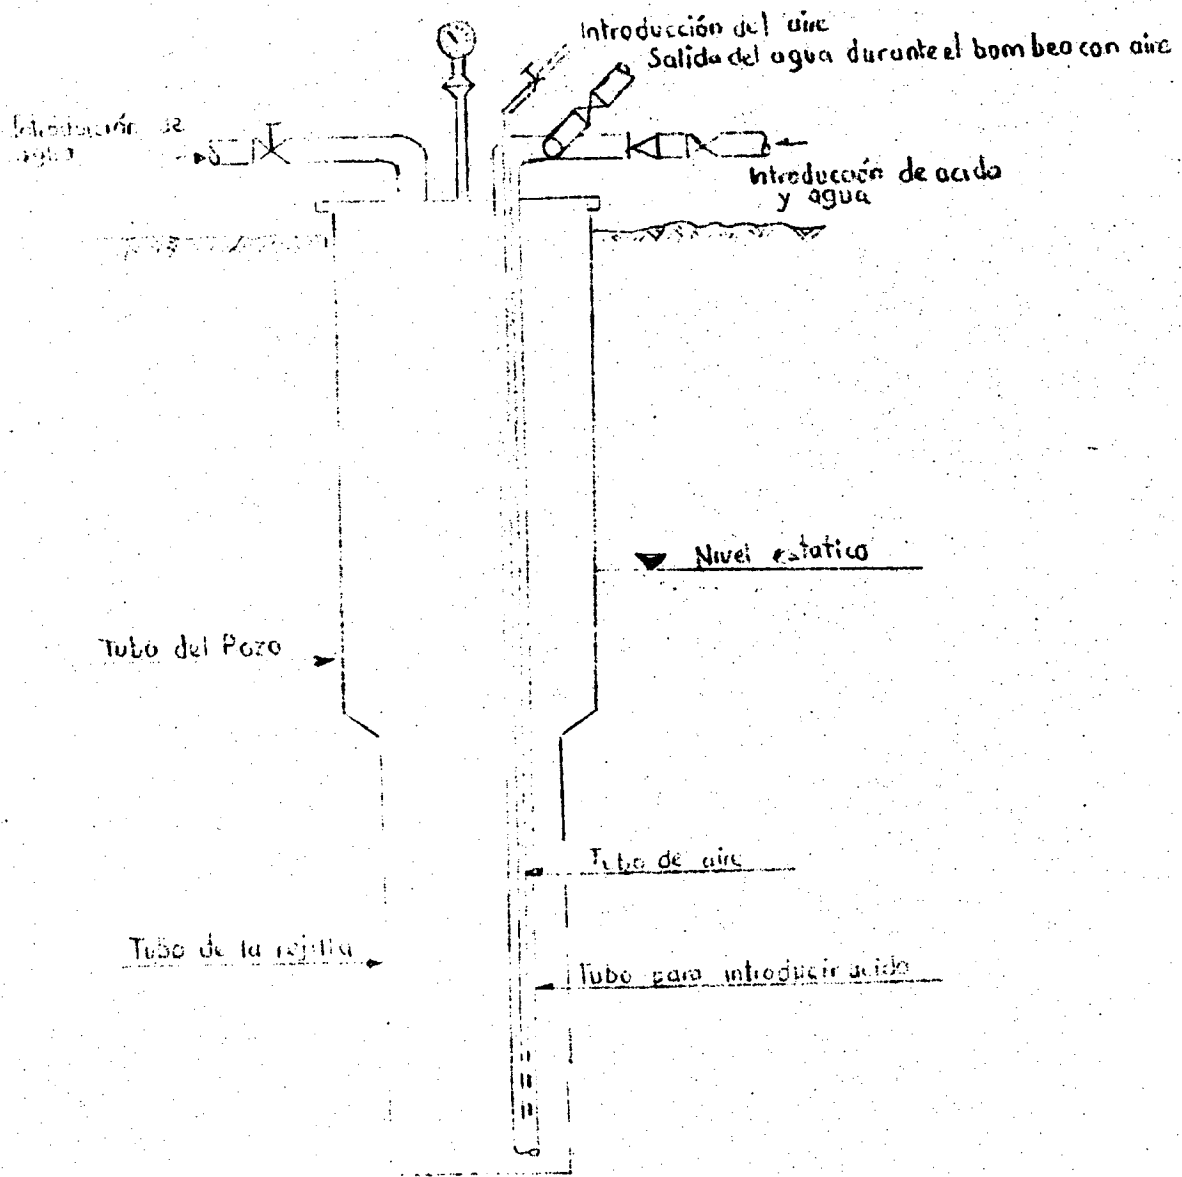 Introducción del aire
Salida del agua durante el bombeo con aire
Introducción de
agua
Introducción de acido
y agua
Nivel estatico
Tubo del Pozo
Tubo de aire
Tubo de la rejilla
Tubo para introducir acido